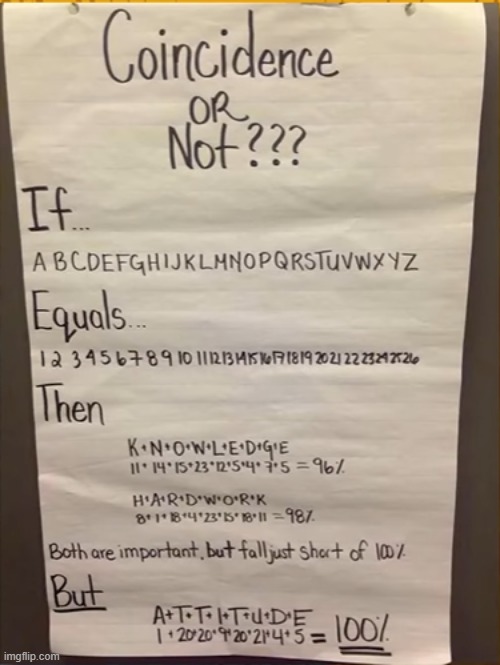 Coincidence
OR
Not???
If...
A B C D E F G H I J K L M N O P Q R S T U V W X Y Z
Equals...
1 2 3 4 5 6 7 8 9 10 11 12 13 14 15 16 17 18 19 20 21 22 23 24 25 26
Then
K+N+O+W+L+E+D+G+E
11+14+15+23+12+5+4+7+5 = 96%
H+A+R+D+W+O+R+K
8+1+18+4+23+15+18+11 = 98%
Both are important, but fall just short of 100%
But
A+T+T+I+T+U+D+E
1+20+20+9+20+21+4+5 = 100%
imgflip.com